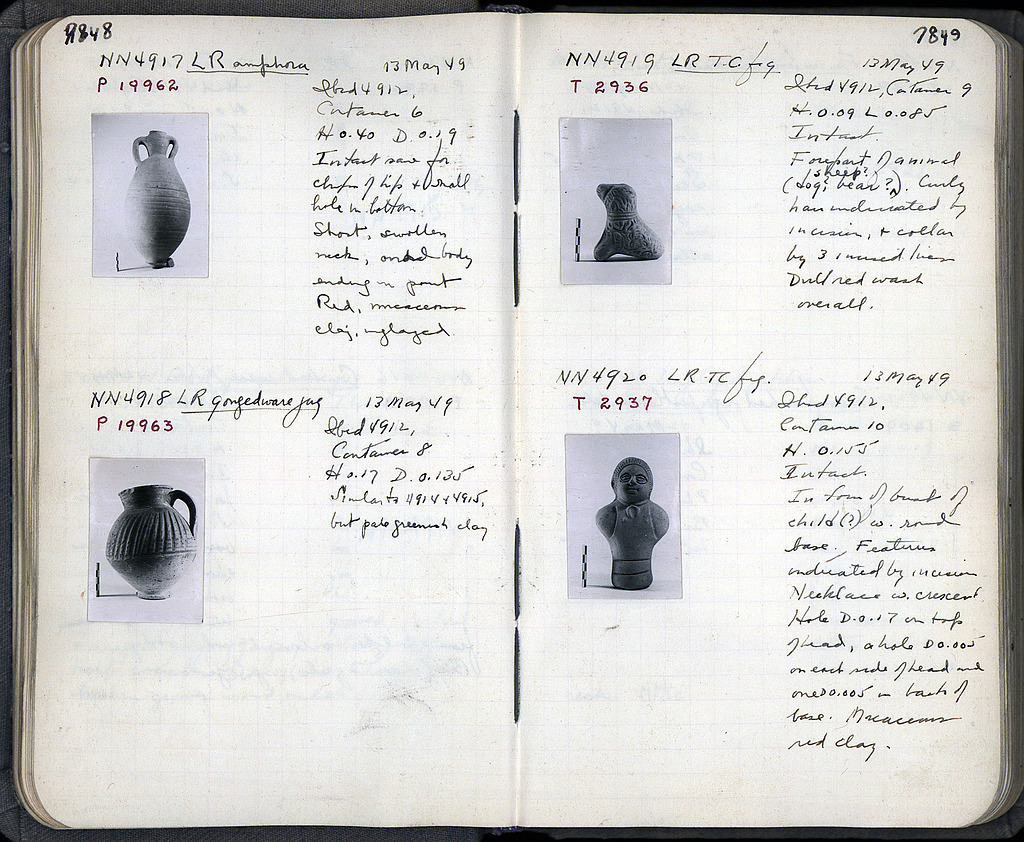 9848
NN4917 LR amphora 13 May 49
P 19962
Ibid 4912,
Container 6
H 0.40 D. 0.19
Intact save for
chips of lip & small
hole in bottom.
Short, swollen
neck; body
ending in point
Red, micaceous
clay, unglazed
NN4918 LR gouged ware jug 13 May 49
P 19963
Ibid 4912,
Container 8
H 0.17 D. 0.135
Similar to 4914 & 4915,
but pale greenish clay
7849
NN4919 LR TC fig 13 May 49
T 2936
Ibid 4912, Container 9
H. 0.09 L 0.085
Intact.
Forepart of animal
sheep?
(dog? bear?). Curly
hair indicated by
incision, & collar
by 3 incised lines
Dull red wash
overall.
NN4920 LR TC fig. 13 May 49
T 2937
Ibid 4912,
Container 10
H. 0.155
Intact.
In form of bust of
child (?) w. round
base. Features
indicated by incision
Necklace w. crescent.
Hole D. 0.17 on top
of head, a hole D 0.005
on each side of head and
one D 0.005 in back of
base. Micaceous
red clay.